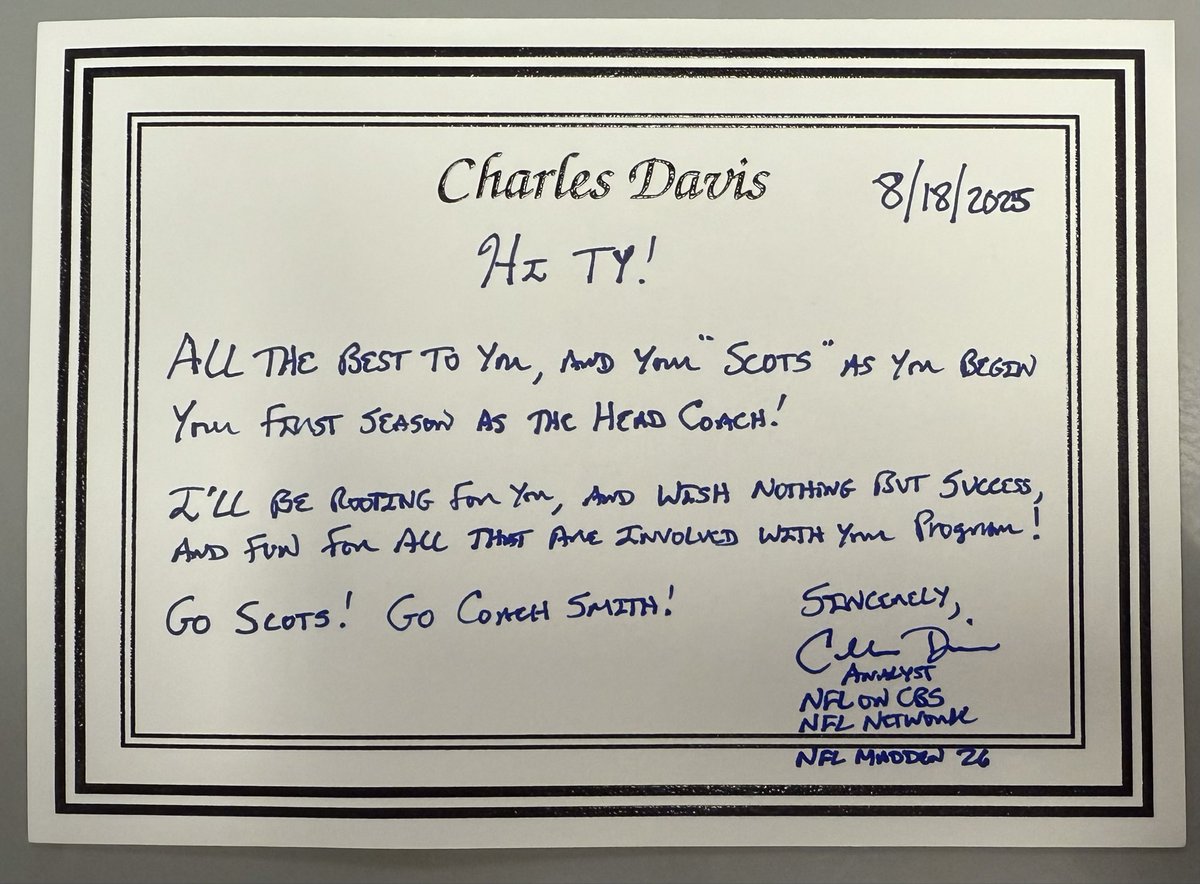 Charles Davis
8/18/2025
HI TY!
ALL THE BEST TO YOU, AND YOUR "SCOTS" AS YOU BEGIN
YOUR FIRST SEASON AS THE HEAD COACH!
I'LL BE ROOTING FOR YOU, AND WISH NOTHING BUT SUCCESS,
AND FUN FOR ALL THAT ARE INVOLVED WITH YOUR PROGRAM!
GO SCOTS! GO COACH SMITH!
SINCERELY,
Charles Davis
ANALYST
NFL ON CBS
NFL NETWORK
NFL MADDEN 26